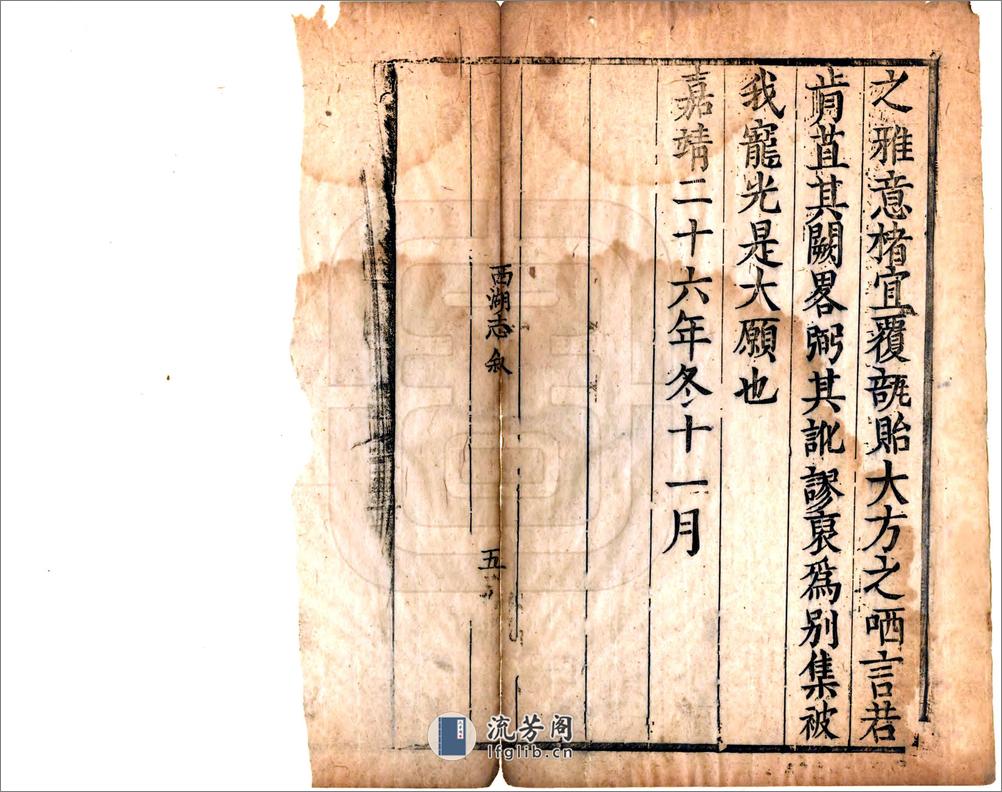 之雅意楮宜覆瓿貽大方之哂言若
肯苴其闕畧弼其訛謬裒為別集被
我寵光是大願也
嘉靖二十六年冬十一月
西湖志叙
五
流芳阁
lfglib.cn